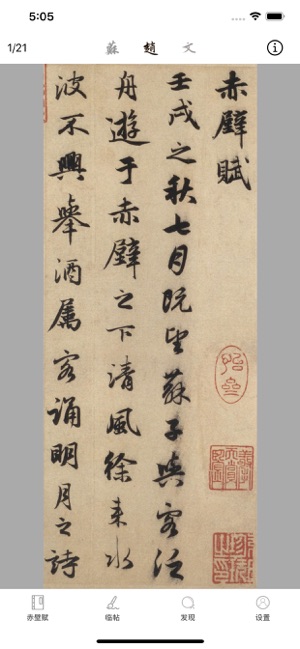 5:05
1/21
蘇
趙
文
赤壁賦
壬戌之秋七月既望蘇子與客泛
舟遊于赤壁之下清風徐来水
波不興舉酒属客誦明月之詩
赤壁赋
临帖
发现
设置